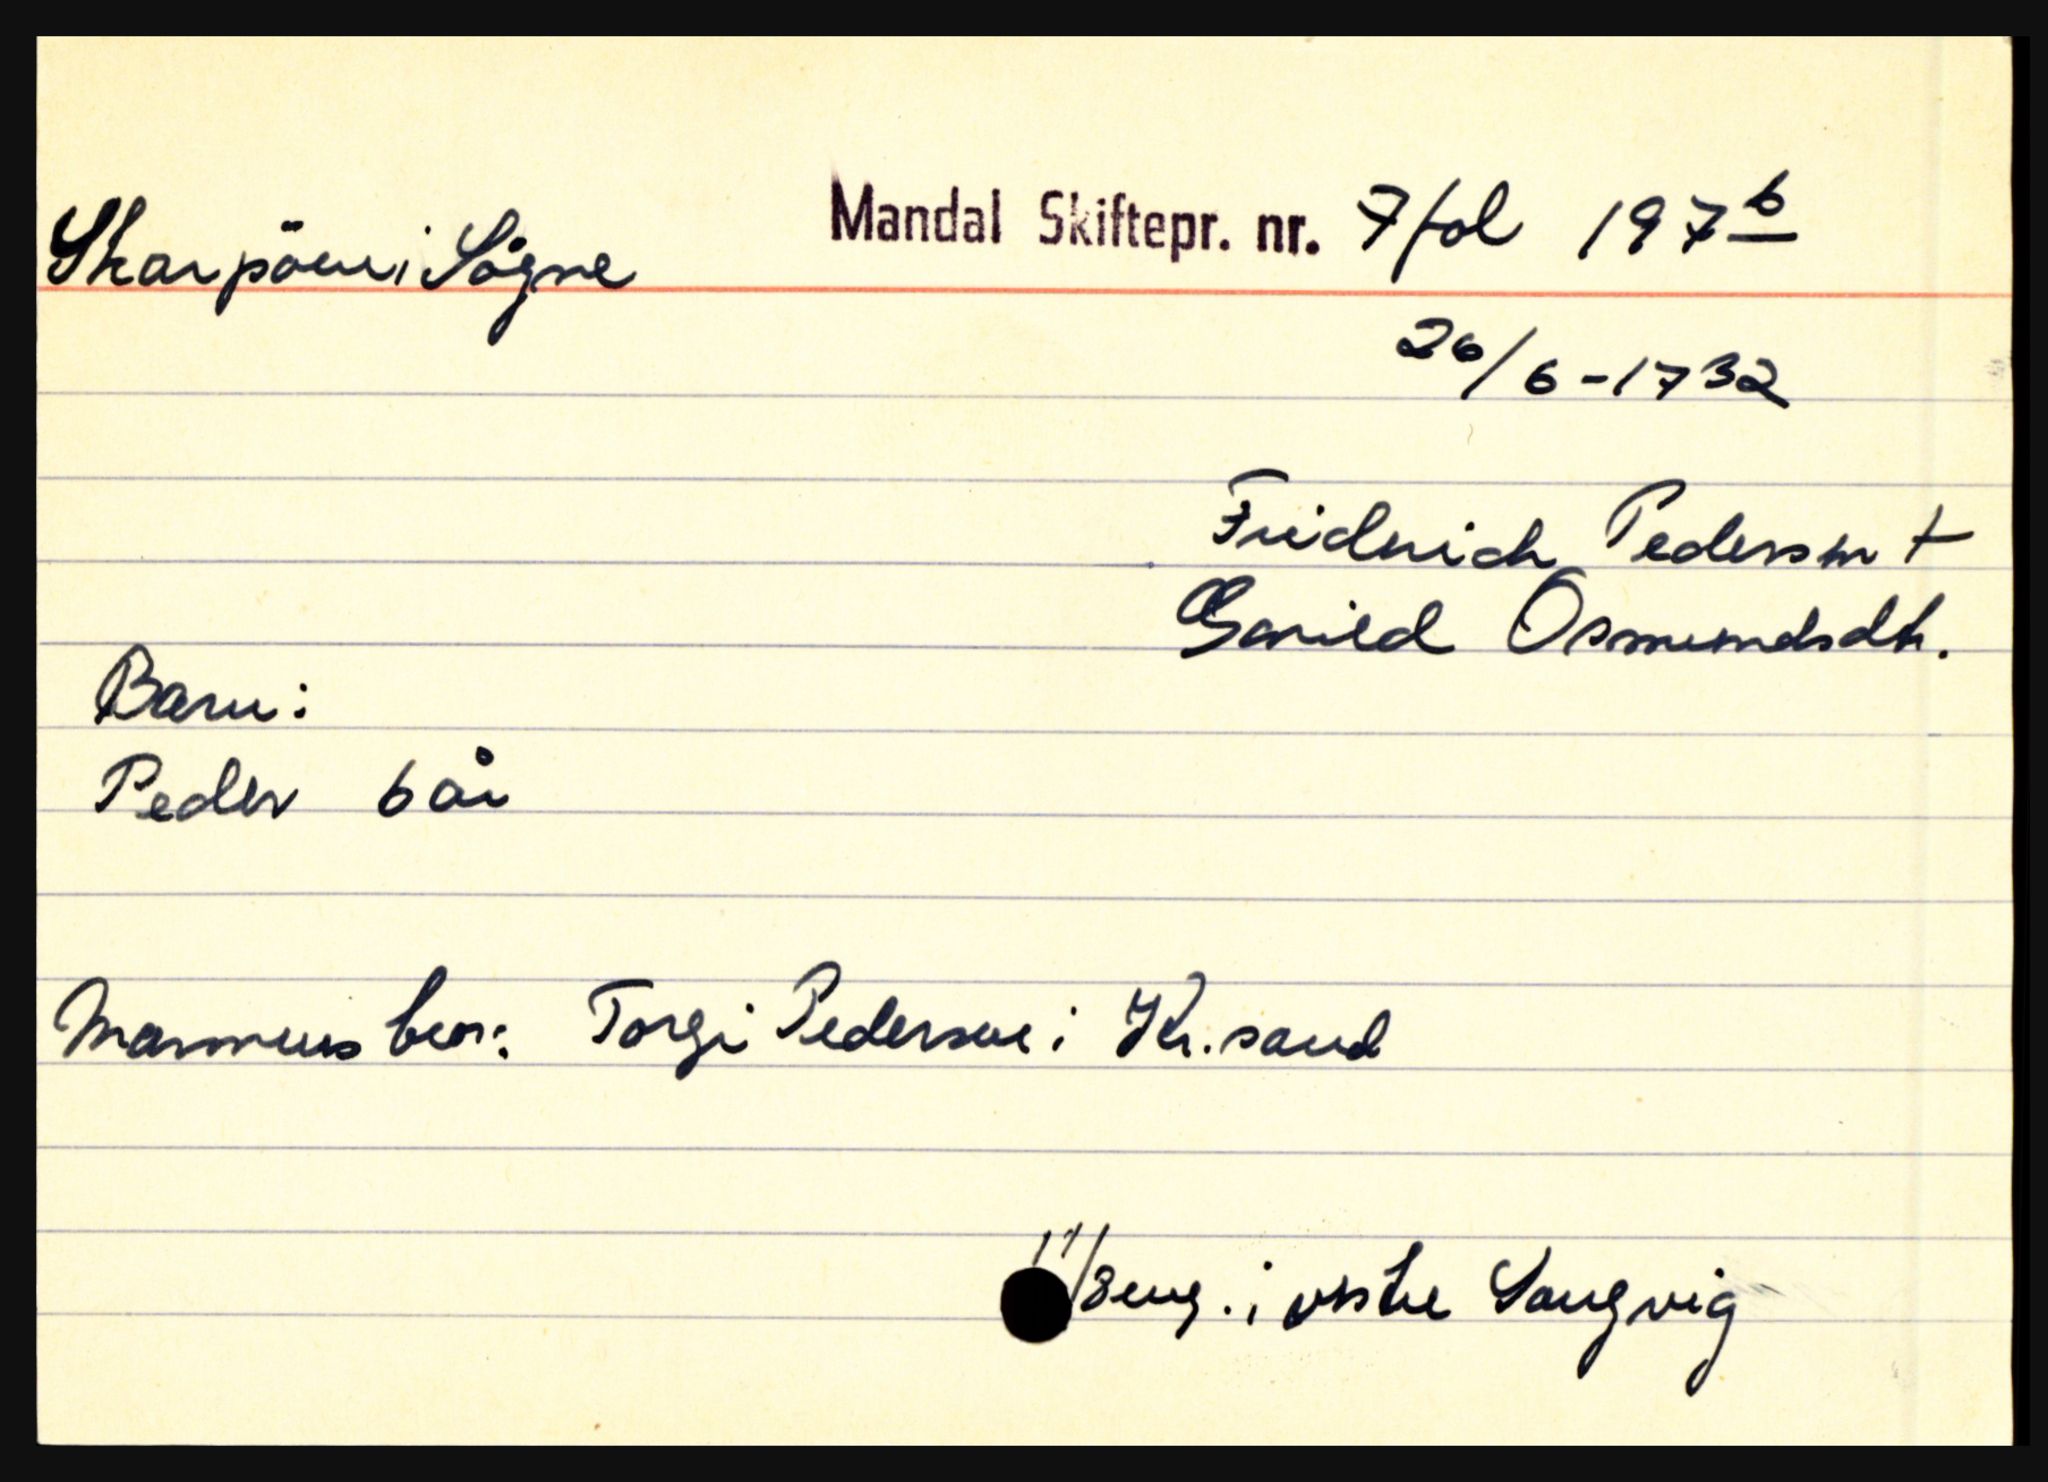 Skarpöen i Sögne Mandal Skiftepr. nr. 7 fol 197 b
26/6-1732
Friedrich Pedersen +
Gunild Osmundsdtr.
Barn:
Peder 6 år
Mammens bror: Torgi Pedersen i Kr.sand
11/8 eng. i vestre Langvig